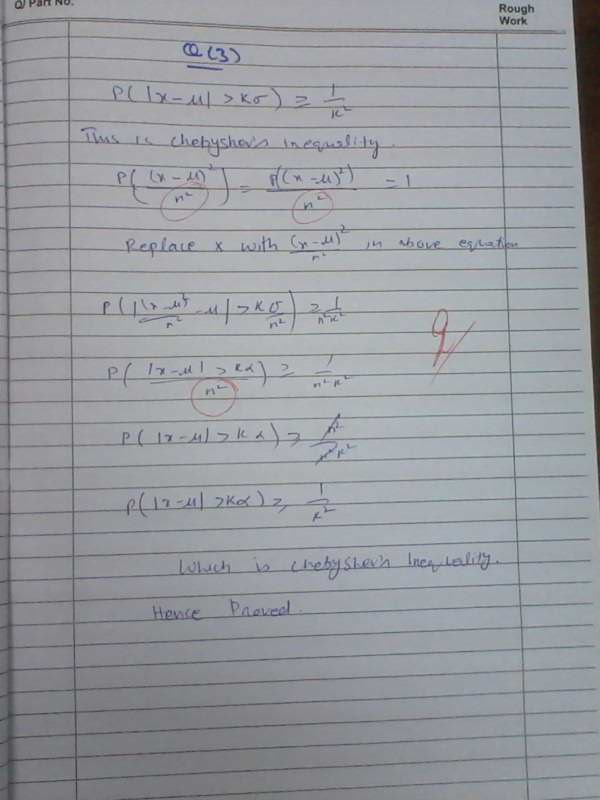 Q/ Part No.
Rough
Work
Q(3)
P( |x-μ| > Kσ ) ≥ 1/K²
This is chebyshev's Inequality.
P( (x-μ)²/n² ) = P((x-μ)²)/n² = 1
Replace x with (x-μ)²/n² in above equation
P( |(x-μ)²/n² - μ| > K σ/n² ) ≥ 1/n²K²
P( |x-μ| > Kα / n² ) ≥ 1/n²K²
P( |x-μ| > Kα ) ≥ n²/n²K²
P( |x-μ| > Kα ) ≥ 1/K²
Which is chebyshev's Inequality.
Hence Proved.